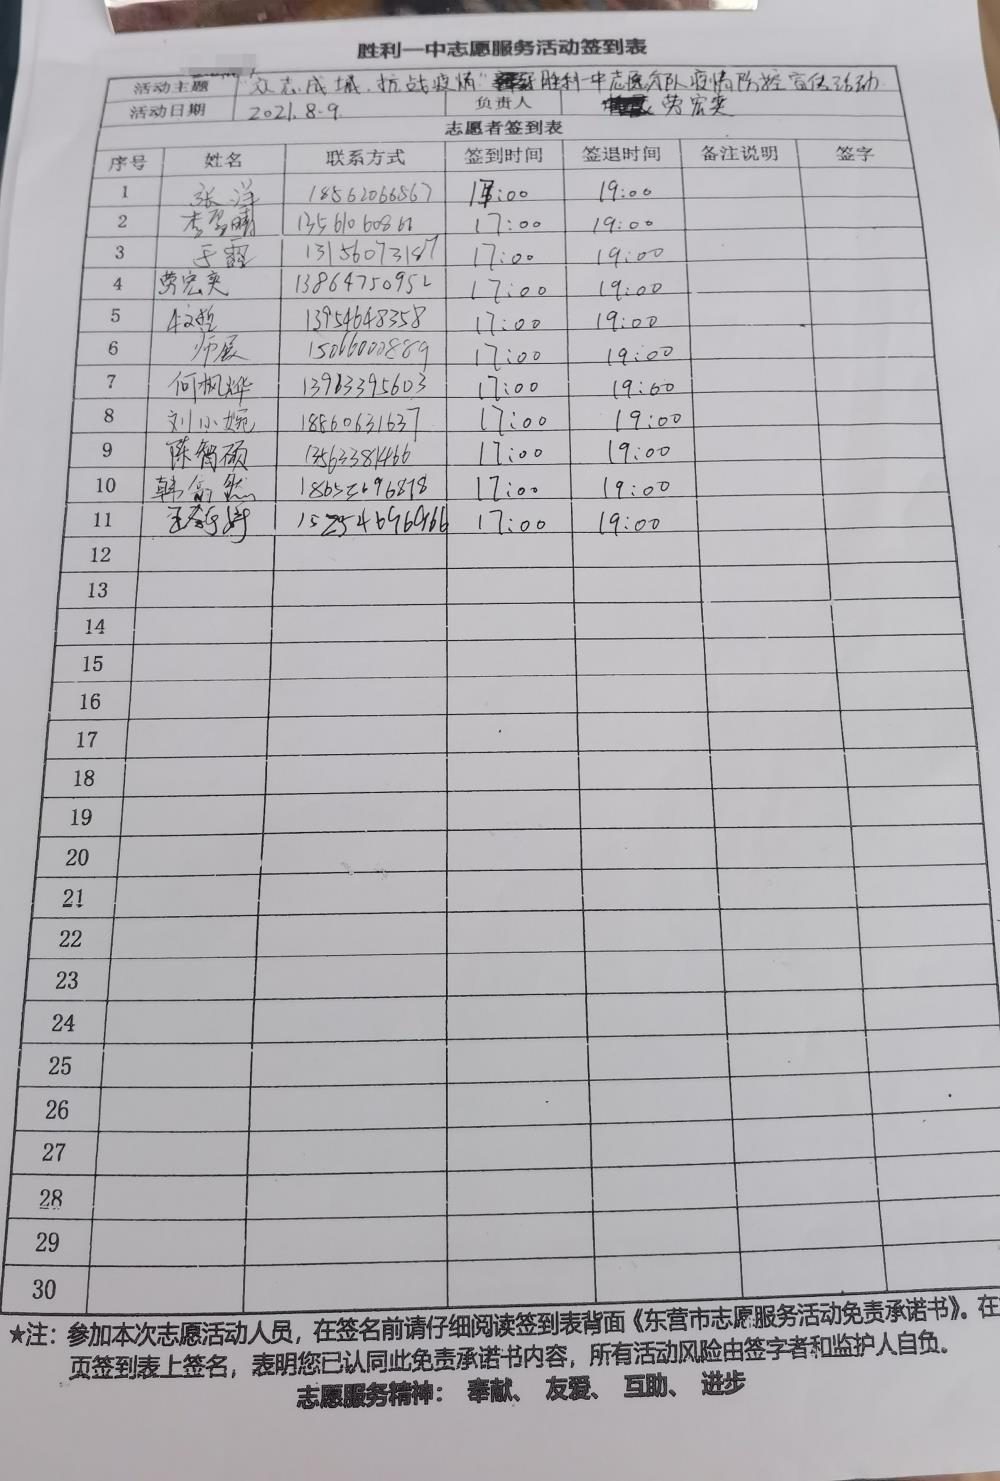 胜利一中志愿服务活动签到表
活动主题 众志成城,抗战疫情" 胜利一中志愿者队疫情防控宣传活动
活动日期 2021.8.9. 负责人 劳宏奕
志愿者签到表
序号 姓名 联系方式 签到时间 签退时间 备注说明 签字
1 张洋 18562066567 17:00 19:00
2 17:00 19:00
3 于露 13156073187 17:00 19:00
4 劳宏奕 13864750952 17:00 19:00
5 13954648358 17:00 19:00
6 师展 15066000889 17:00 19:00
7 何枫烨 13963395603 17:00 19:00
8 刘小婉 18560631637 17:00 19:00
9 陈智硕 13563381466 17:00 19:00
10 韩 然 17:00 19:00
11 17:00 19:00
12
13
14
15
16
17
18
19
20
21
22
23
24
25
26
27
28
29
30
★注: 参加本次志愿活动人员,在签名前请仔细阅读签到表背面《东营市志愿服务活动免责承诺书》。在
页签到表上签名,表明您已认同此免责承诺书内容,所有活动风险由签字者和监护人自负。
志愿服务精神: 奉献、 友爱、 互助、 进步